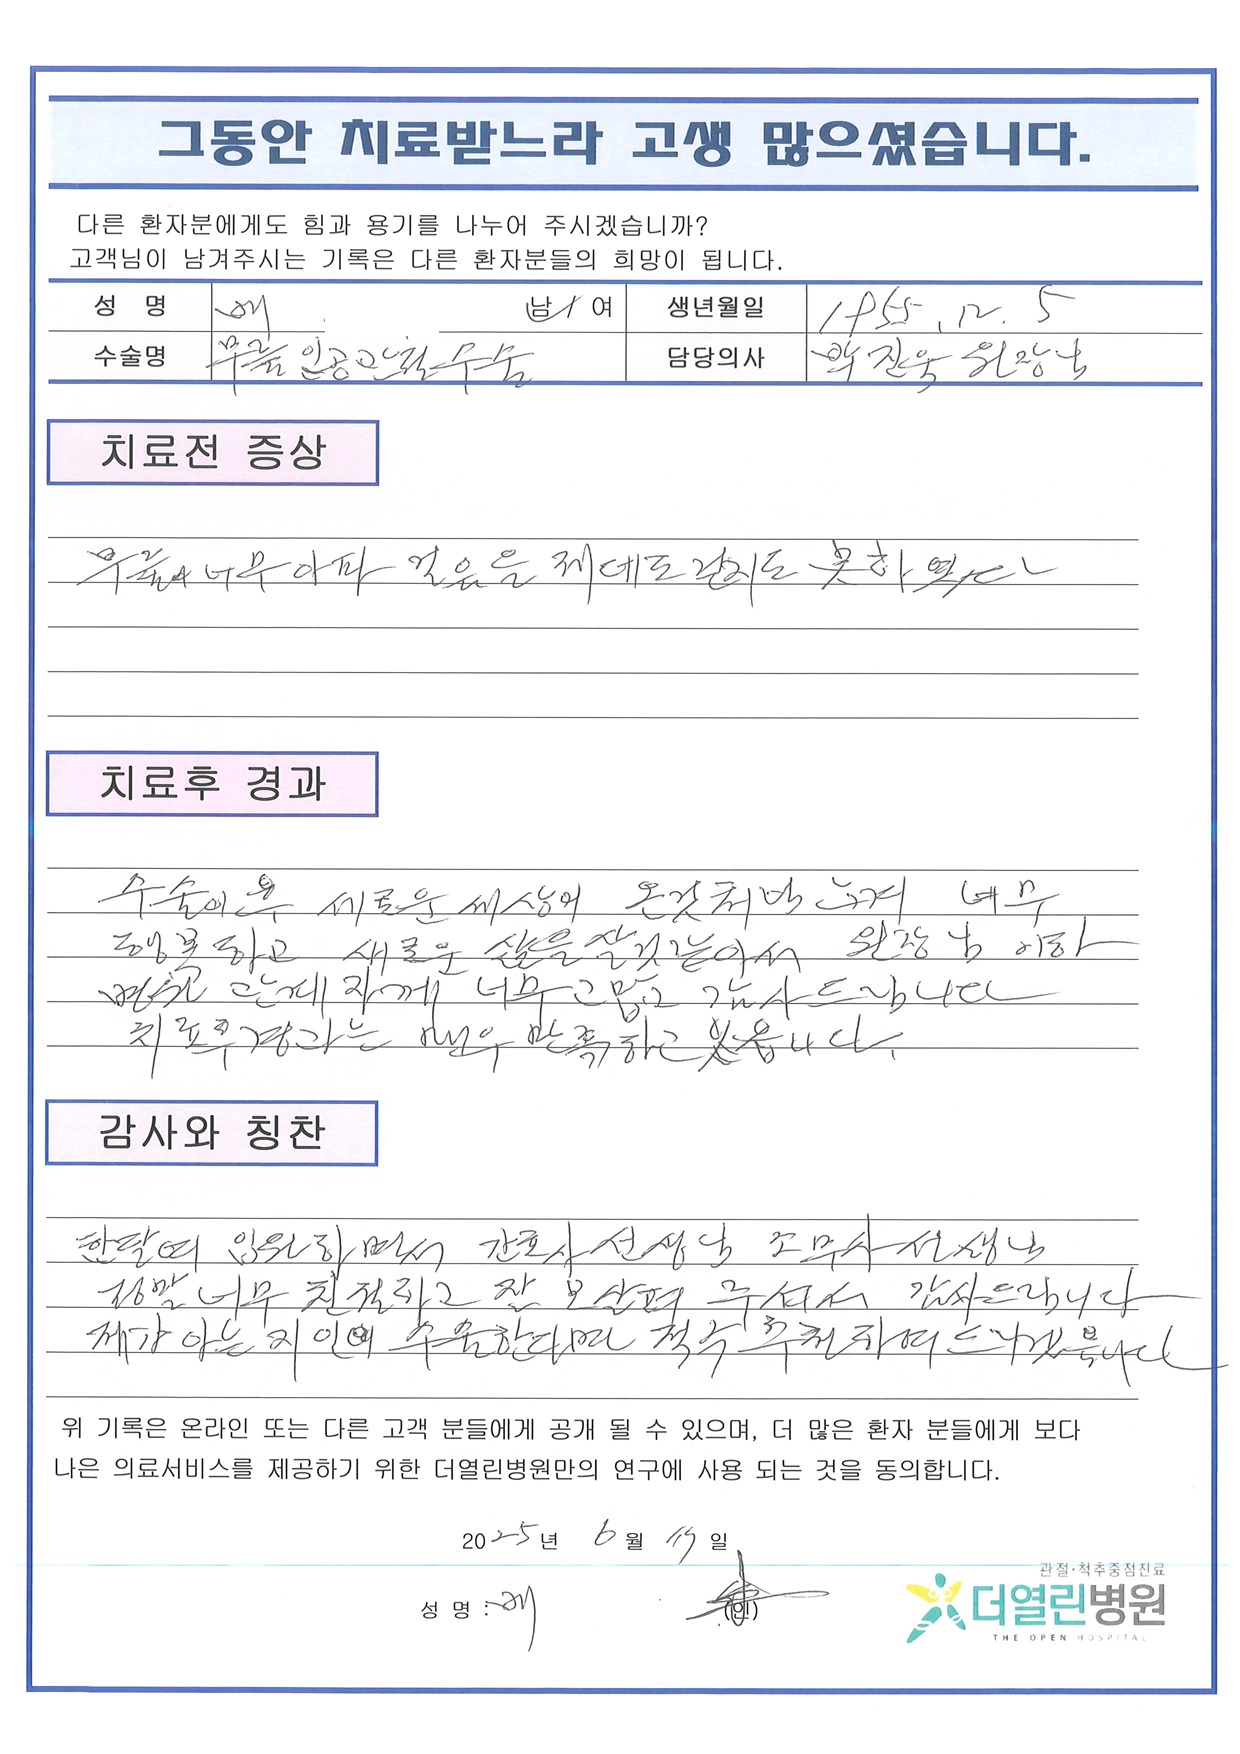 그동안 치료받느라 고생 많으셨습니다.
다른 환자분에게도 힘과 용기를 나누어 주시겠습니까?
고객님이 남겨주시는 기록은 다른 환자분들의 희망이 됩니다.
성 명 남 / 여 생년월일 1955. 12. 5
수술명 무릎 인공관절수술 담당의사 박진욱 원장님
치료전 증상
무릎이 너무 아파 걸음을 제데로 걷지도 못하였다
치료후 경과
수술이후 세로운 세상의 온것처럼 느껴 너무
행복하고 새로운 삶을 살것같아서 원장님 이하
관계자께 너무 고맙고 감사드립니다
치료후 경과는 매우 만족하고 있읍니다.
감사와 칭찬
한달여 입원하며서 간호사선생님 조무사선생님
정말 너무 친절하고 잘 보살펴 주셔서 감사드립니다
제가 아는 지인이 수술한다면 적극 추천하여 드리겠읍니다
위 기록은 온라인 또는 다른 고객 분들에게 공개 될 수 있으며, 더 많은 환자 분들에게 보다
나은 의료서비스를 제공하기 위한 더열린병원만의 연구에 사용 되는 것을 동의합니다.
2025년 6월 일
관절·척추중점진료
성 명 : (인) 더열린병원
THE OPEN HOSPITAL